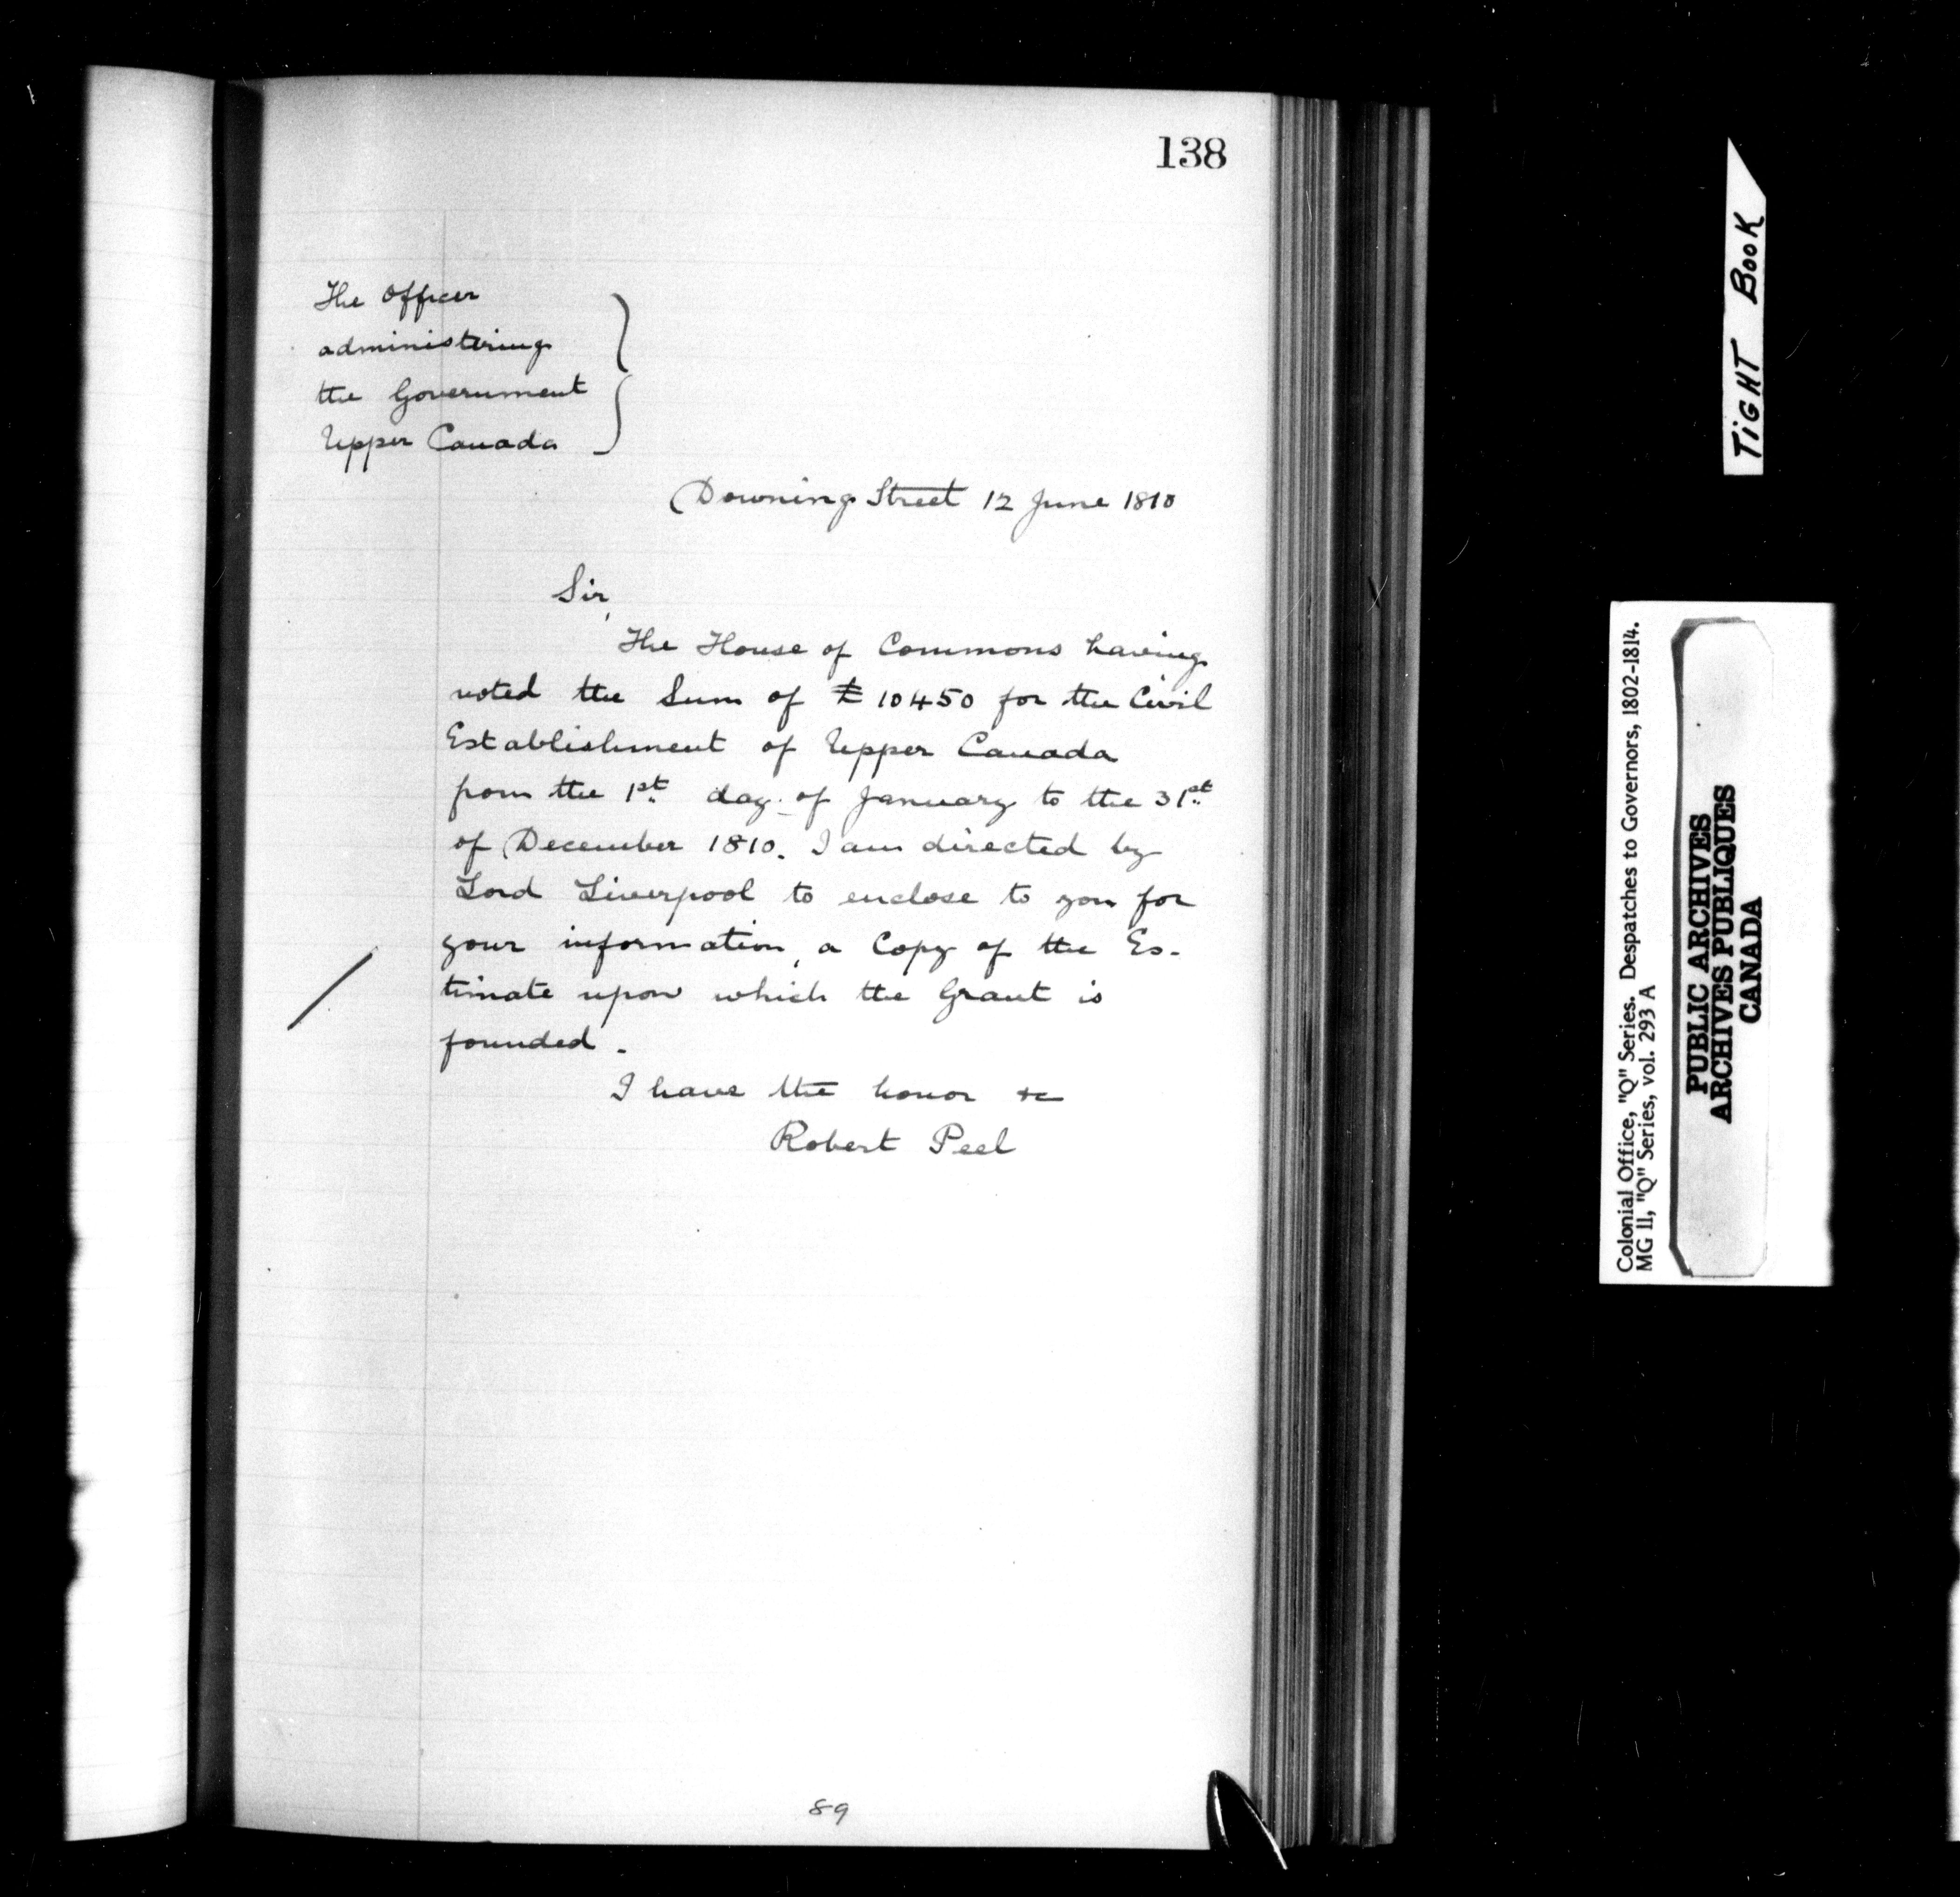 138
The Officer
administering
the Government
Upper Canada
Downing Street 12 June 1810
Sir,
The House of Commons having
voted the Sum of £10450 for the Civil
Establishment of Upper Canada
from the 1st day of January to the 31st
of December 1810. I am directed by
Lord Liverpool to enclose to you for
your information, a Copy of the Es-
timate upon which the Grant is
founded.
I have the honor &c
Robert Peel
89
TIGHT BOOK
Colonial Office, "Q" Series. Despatches to Governors, 1802-1814.
MG 11, "Q" Series, vol. 293 A
PUBLIC ARCHIVES
ARCHIVES PUBLIQUES
CANADA